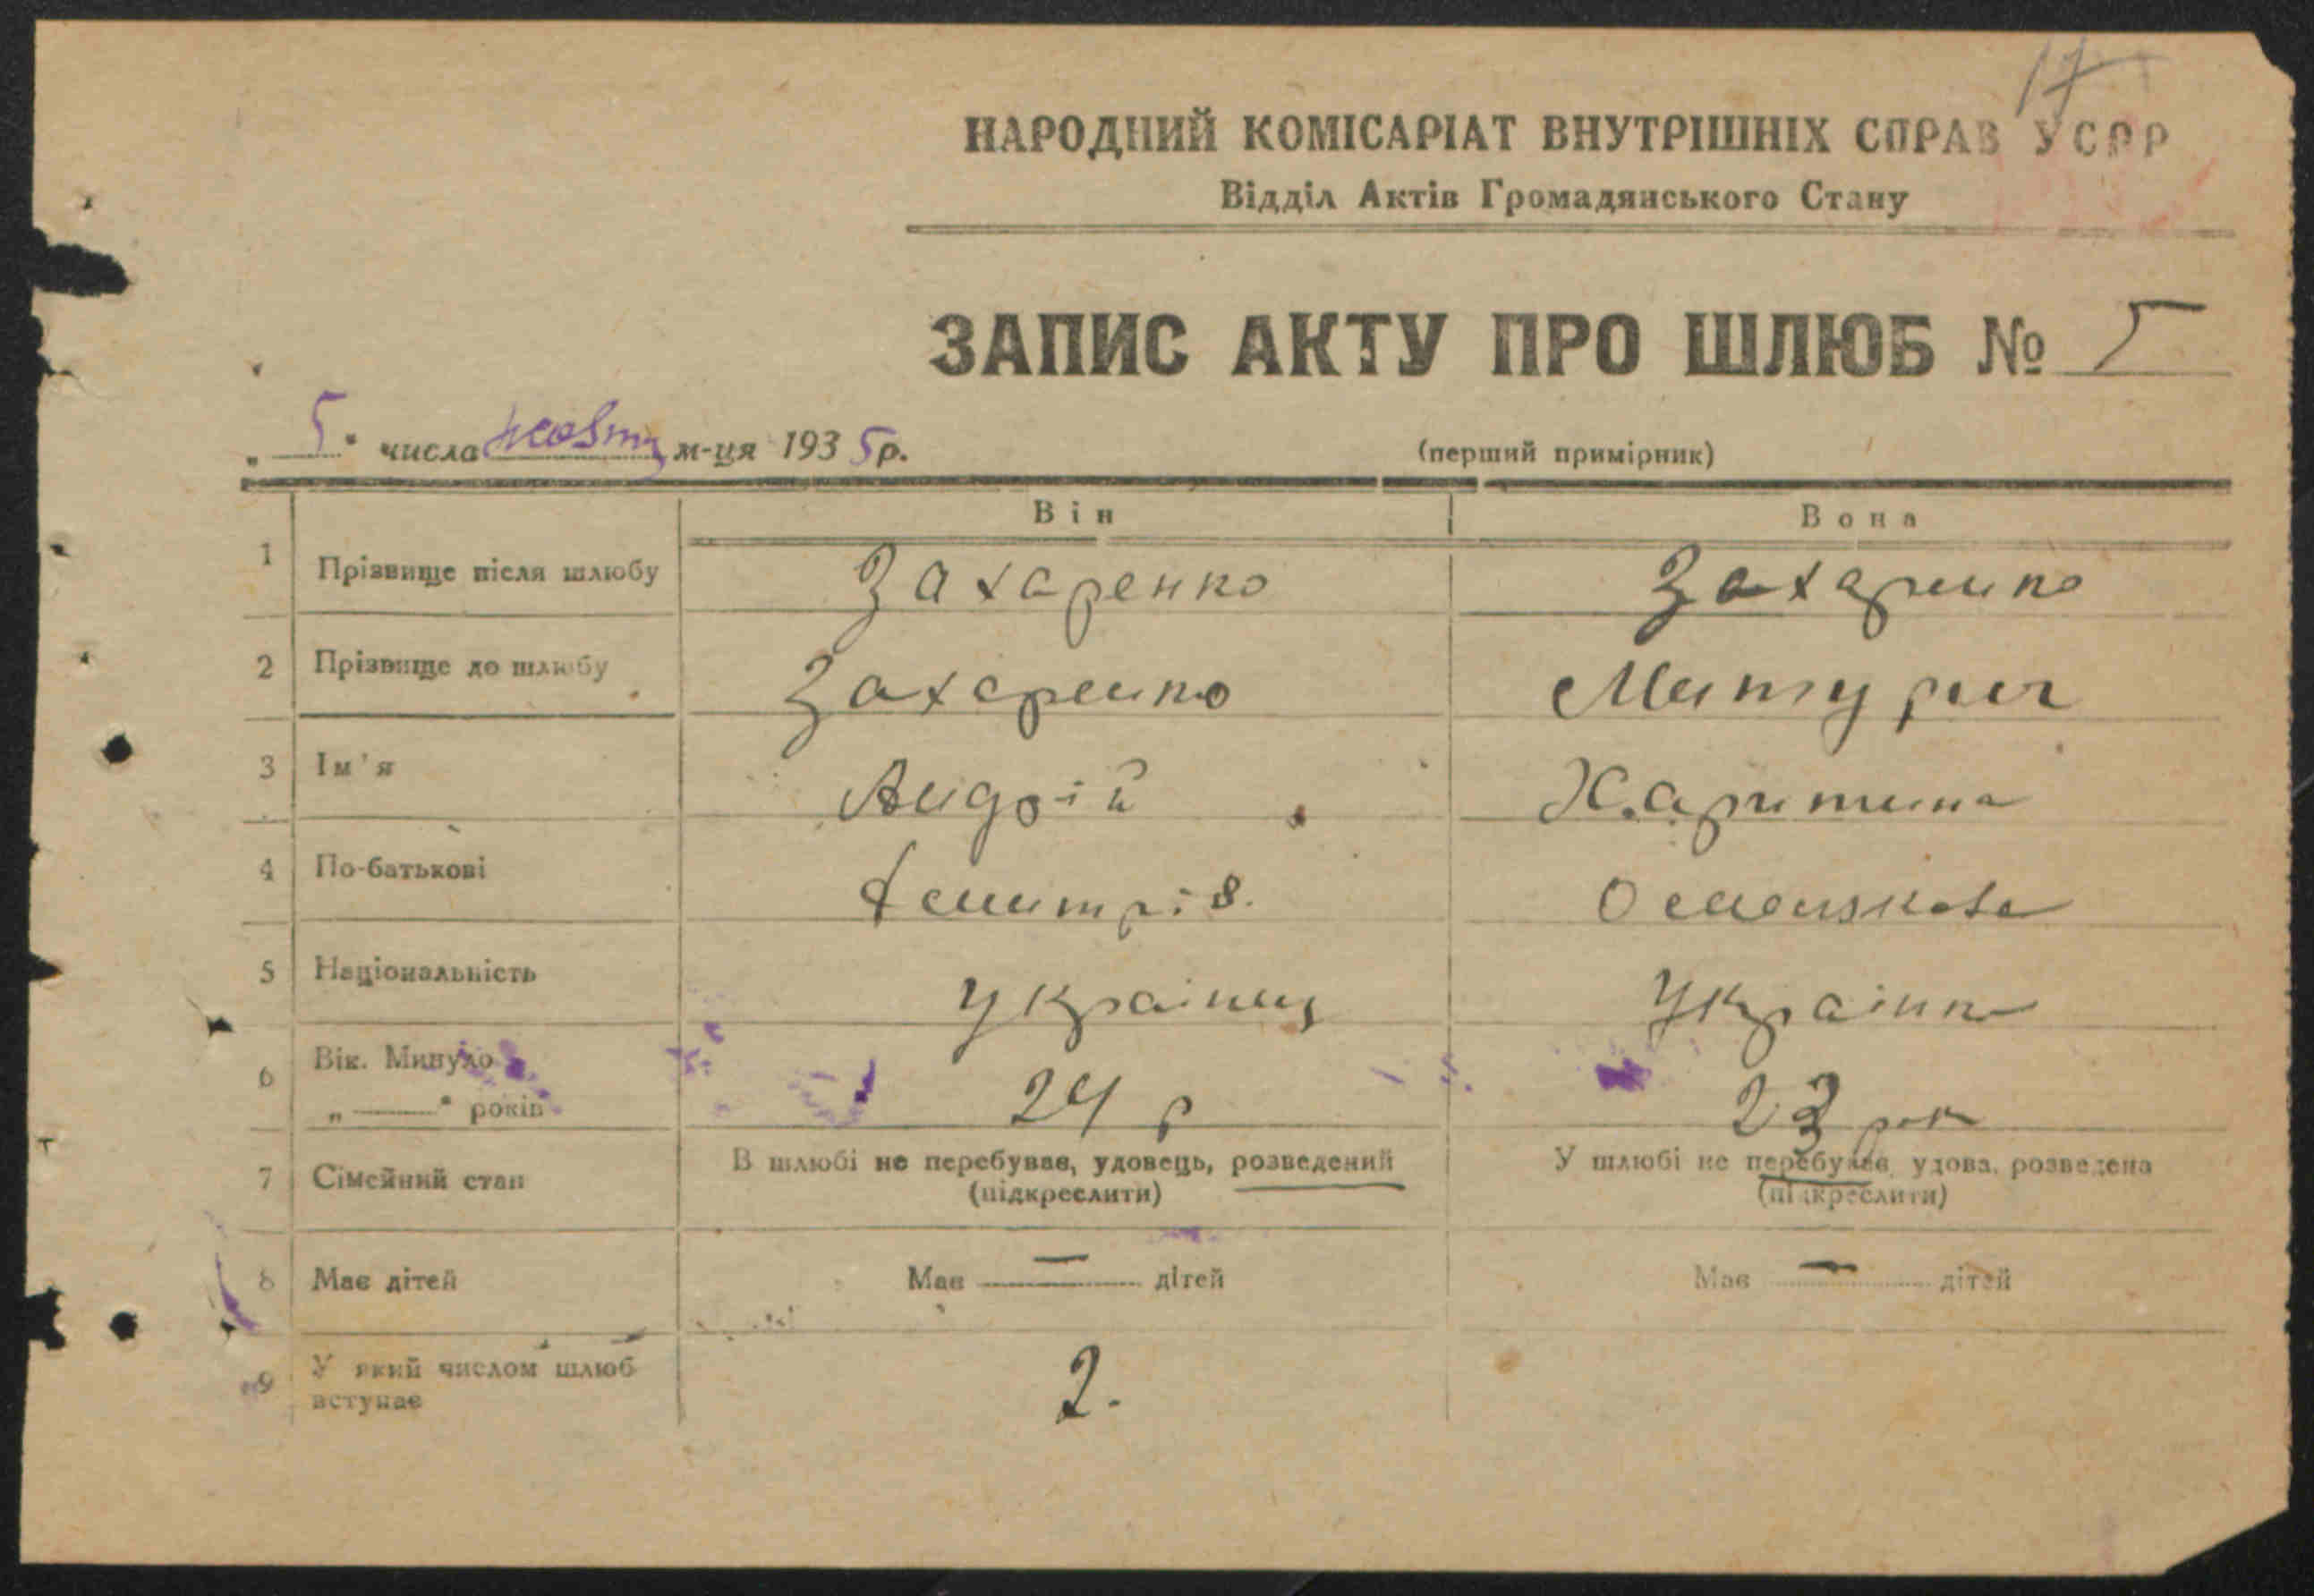 17
НАРОДНИЙ КОМІСАРІАТ ВНУТРІШНІХ СПРАВ УСРР
Відділ Актів Громадянського Стану
ЗАПИС АКТУ ПРО ШЛЮБ № 5
„ 5 " числа жовтн м-ця 193 5 р.
(перший примірник)
Він Вона
1 Прізвище після шлюбу Захаренко Захаренко
2 Прізвище до шлюбу Захаренко
3 Ім'я Андрій Харитина
4 По-батькові
5 Національність Українец Українк
6 Вік. Минуло
„ — " років 24 р 23 рок
7 Сімейний стан В шлюбі не перебував, удовець, розведений У шлюбі не перебував, удова, розведена
(підкреслити) (підкреслити)
8 Має дітей Має — дітей Має — дітей
9 У який числом шлюб
вступає 2.